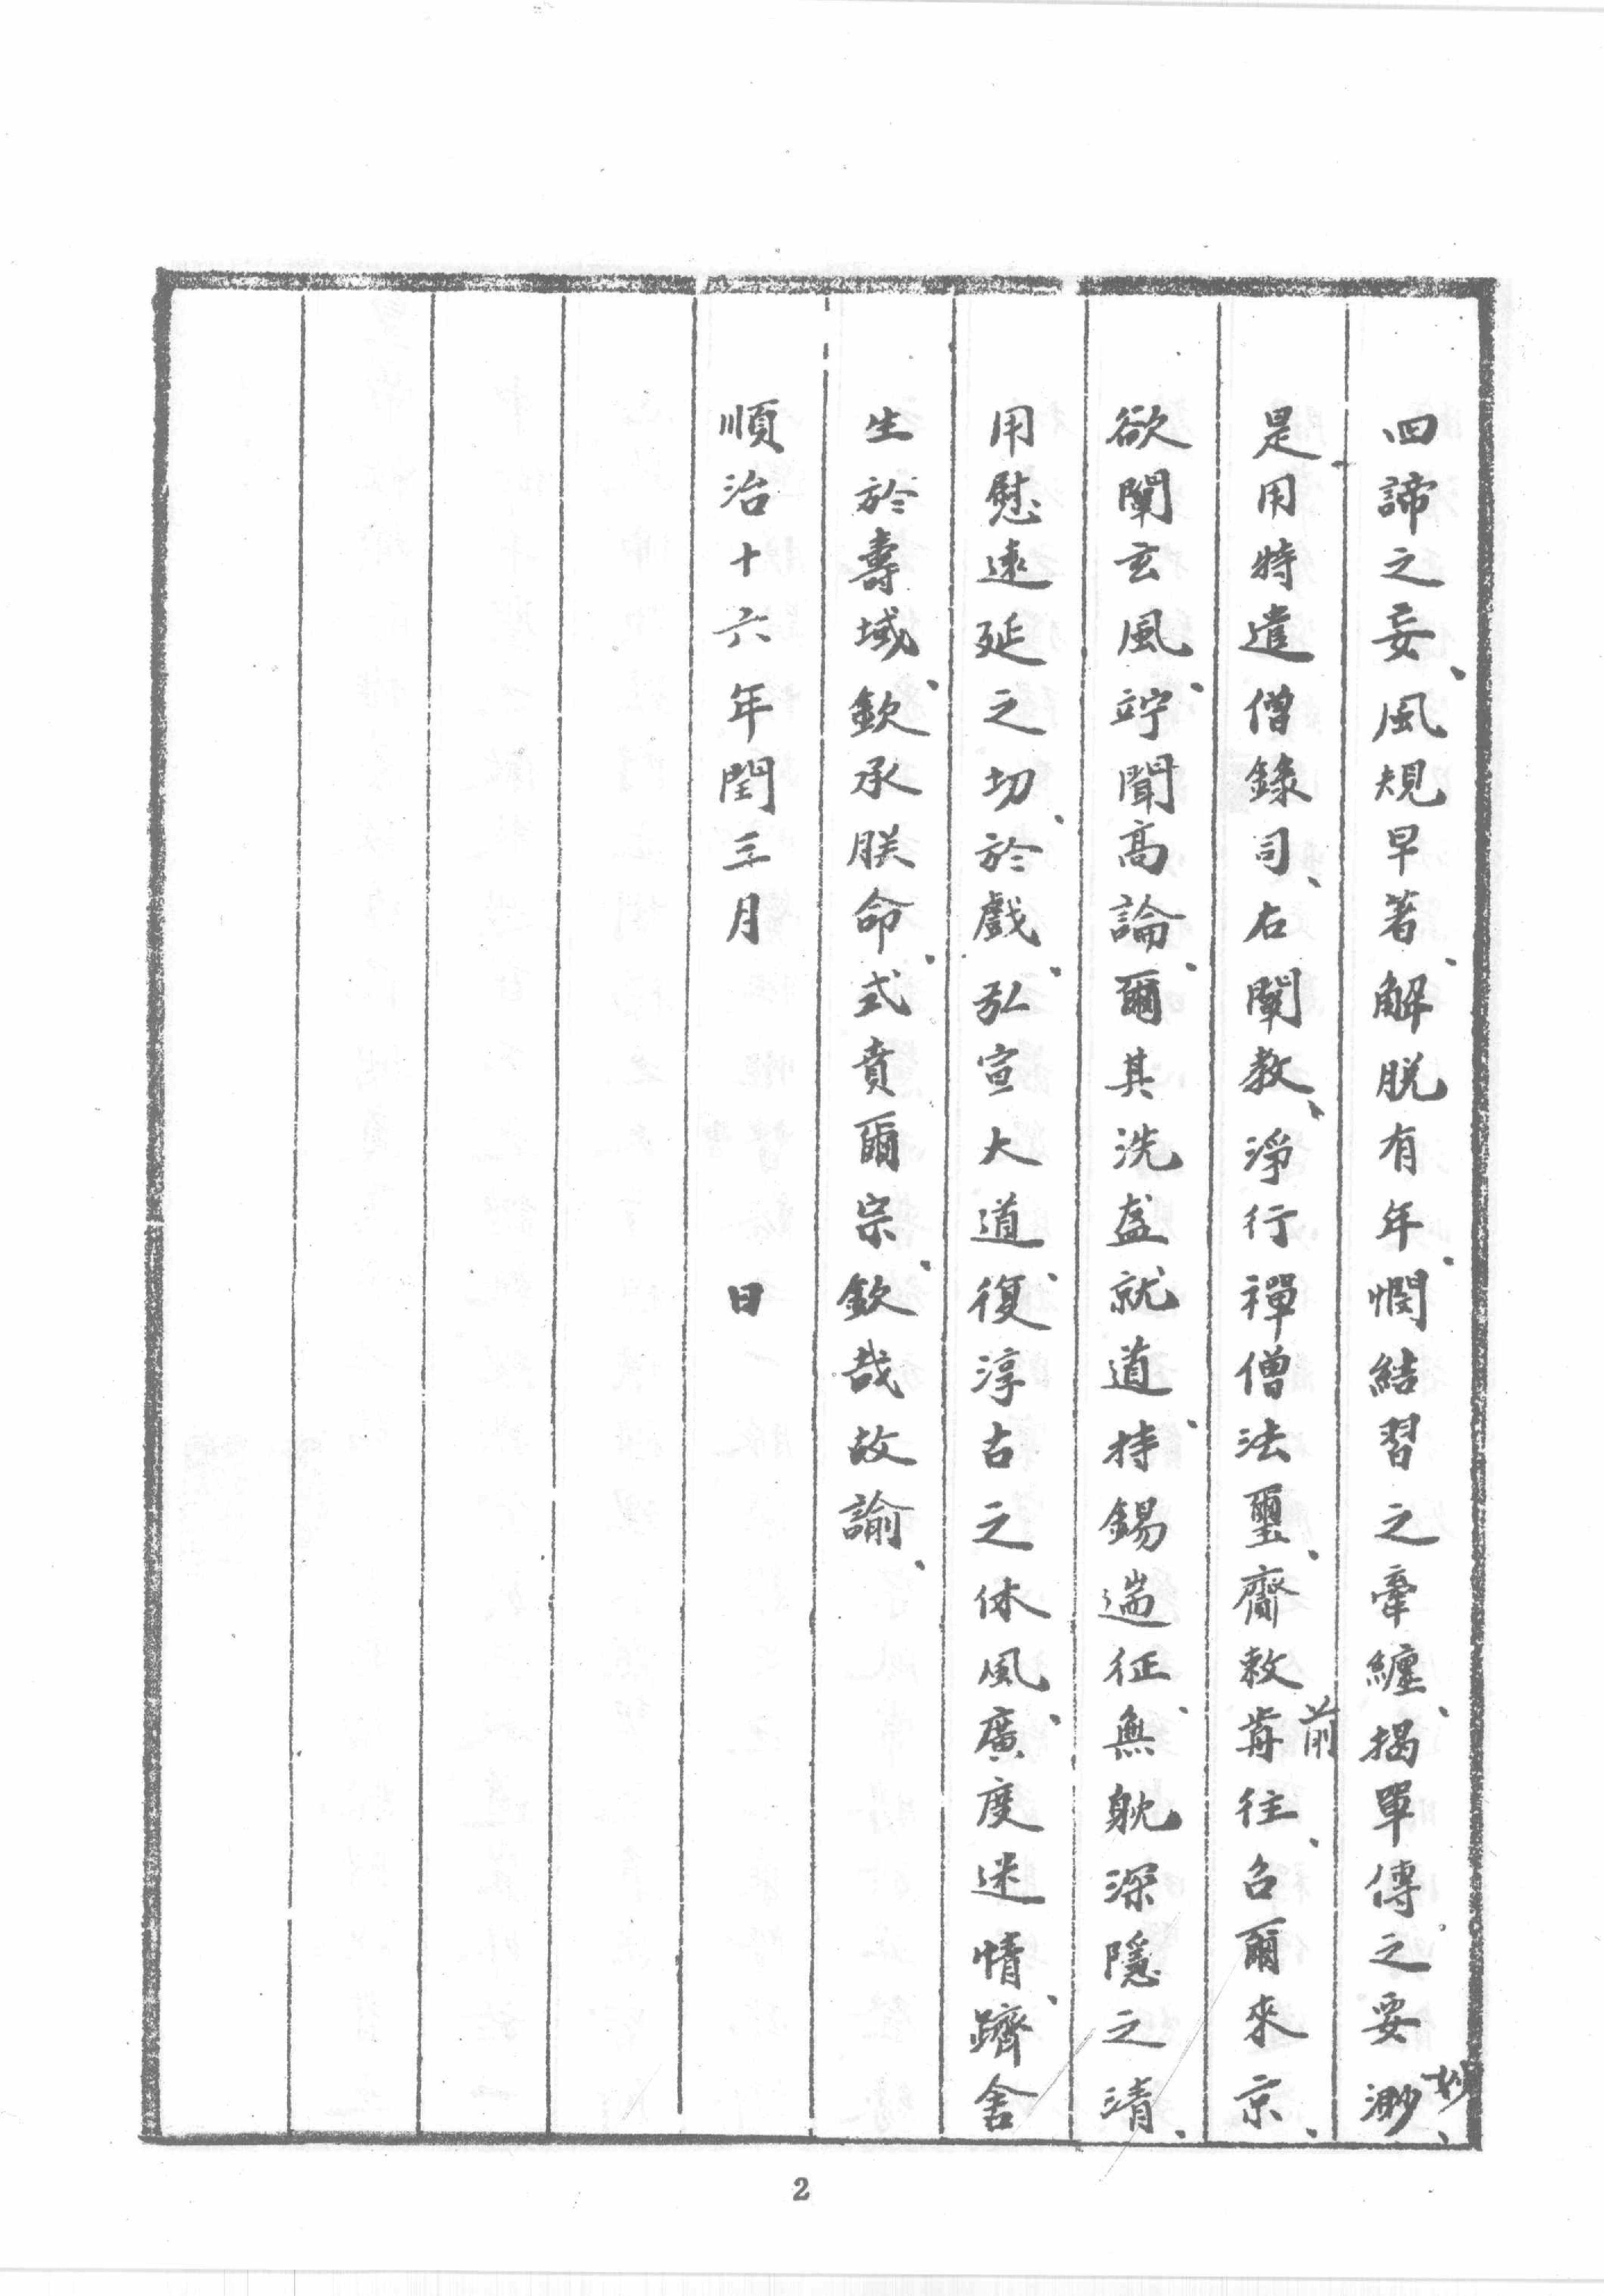 四諦之妄、風規早著、解脱有年、憫結習之牽纏、揭單傳之要渺妙、
是用特遣僧錄司、右闡教、淨行禪僧法璽、齎敕歬前往、召爾來京、
欲闡玄風、竚聞高論、爾其洗盋就道、持錫遄征、無躭深隱之清、
用慰遠延之切、於戲、弘宣大道、復淳古之休風、廣度迷情、躋含
生於壽域、欽承朕命、式賁爾宗、欽哉故諭、
順治十六年閏三月　　日
2